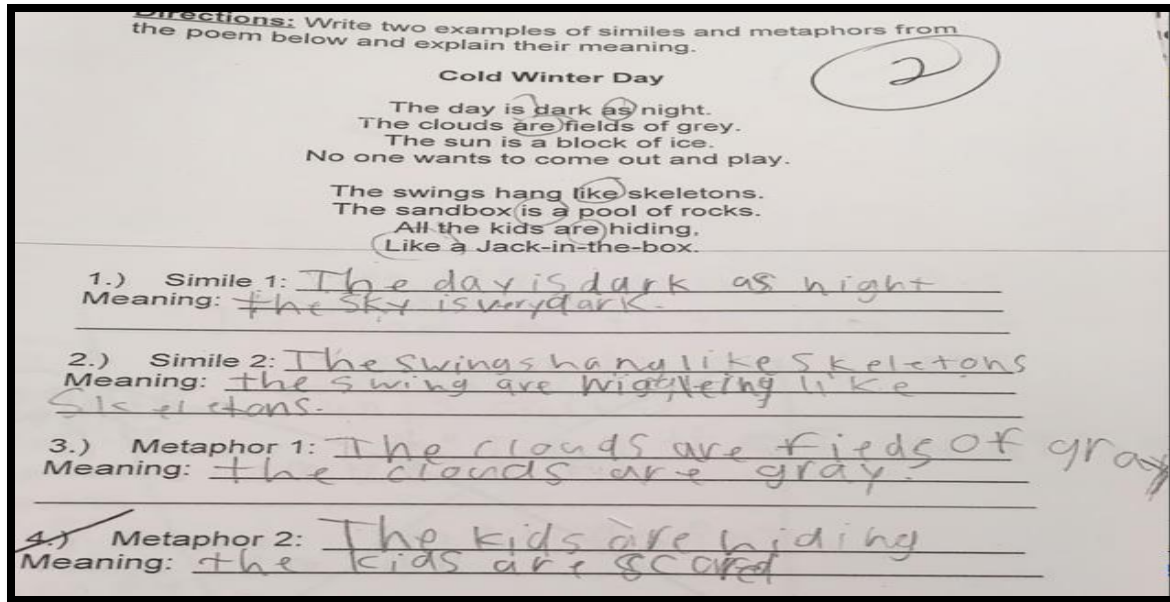 Directions: Write two examples of similes and metaphors from
the poem below and explain their meaning.
2
Cold Winter Day
The day is dark as night.
The clouds are fields of grey.
The sun is a block of ice.
No one wants to come out and play.
The swings hang like skeletons.
The sandbox is a pool of rocks.
All the kids are hiding,
Like a Jack-in-the-box.
1.) Simile 1: The day is dark as night
Meaning: the sky is very dark.
2.) Simile 2: The swings hang like skeletons
Meaning: the swing are wiggleing like
skeletons.
3.) Metaphor 1: The clouds are fieds of gray
Meaning: the clouds are gray.
4.) Metaphor 2: The kids are hiding
Meaning: the kids are scared